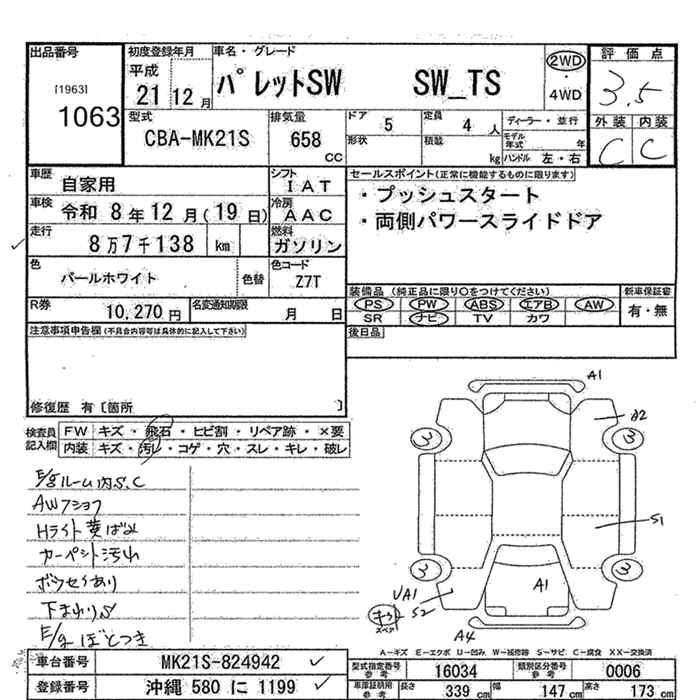 出品番号 初度登録年月 車名・グレード 評価点
[1963] 平成 パレットSW SW_TS 2WD 3.5
1063 21 12月 ・ 4WD
型式 排気量 ドア 5 定員 4人 ディーラー・並行 外装 内装
CBA-MK21S 658 CC 形状 積載 kg モデル年式 年 C C
ハンドル 左・右
車歴 自家用 シフト IAT セールスポイント(正常に機能するものに限ります)
車検 令和 8年12月(19日) 冷房 AAC ・プッシュスタート
走行 8万7千138 km 燃料 ガソリン ・両側パワースライドドア
色 パールホワイト 色替 色コード Z7T
装備品 (純正品に限り○をつけてください) 新車保証書
R券 10,270円 名変通知期限 月 日 PS PW ABS エアB AW 有・無
SR ナビ TV カワ
注意事項申告欄(不具合内容等は具体的に記入して下さい) 後日品
修復歴 有〔箇所 〕
検査員記入欄 FW キズ・飛石・ヒビ割・リペア跡・×要
内装 キズ・汚レ・コゲ・穴・スレ・キレ・破レ
A1
A2
3 3
E/gルーム内S.C
AWフショク
Hライト黄ばみ
S1
カーペット汚れ
3 3
ボウセイあり
A1
UA1
下まわりS
S2
E/gほとつき
A4
A-キズ E-エクボ U-凹み W-補修跡 S-サビ C-腐食 XX-交換済
車台番号 MK21S-824942 型式指定番号 参考 16034 類別区分番号 参考 0006
登録番号 沖縄 580 に 1199 車庫証明用 参考 長さ 339 cm 幅 147 cm 高さ 173 cm